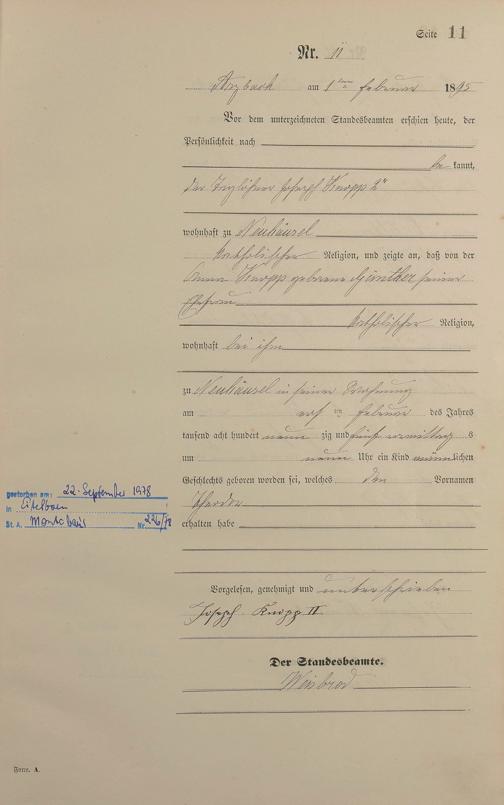 Seite 11
Nr. 11
Arzbach am 1ten Februar 1895
Vor dem unterzeichneten Standesbeamten erschien heute, der
Persönlichkeit nach
be kannt,
der Taglöhner Joseph Knopp 2r
wohnhaft zu Neuhäusel
katholischer Religion, und zeigte an, daß von der
Anna Knopp geborene Günther seiner
Ehefrau
katholischer Religion,
wohnhaft bei ihm
zu Neuhäusel in seiner Wohnung
am ten Februar des Jahres
tausend acht hundert neun zig und fünf vormittag s
um neun Uhr ein Kind männlichen
Geschlechts geboren worden sei, welches den Vornamen
erhalten habe
gestorben am: 22. September 1978
in
St. A. Montabaur Nr. 226/78
Vorgelesen, genehmigt und unterschrieben
Joseph Knopp II
Der Standesbeamte.
Weisbrod
Form. A.